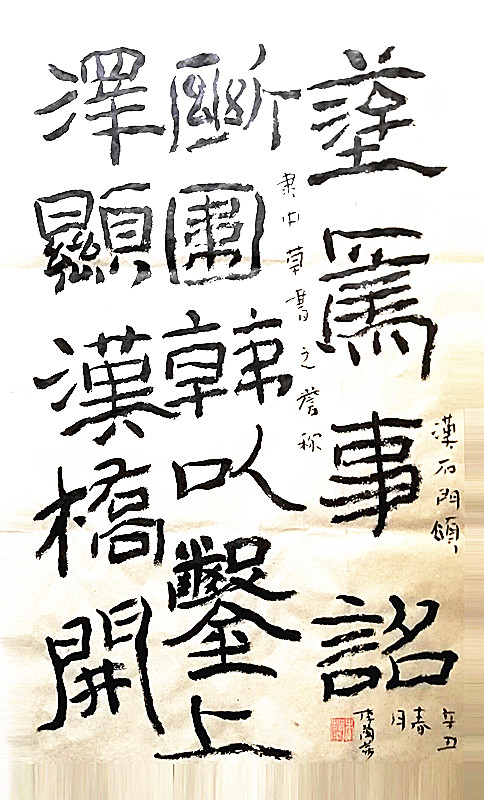 漢石門頌
塗事詔
隶中草書之誉称
斷韓以鑿上
澤顯漢橋開
辛丑
春月